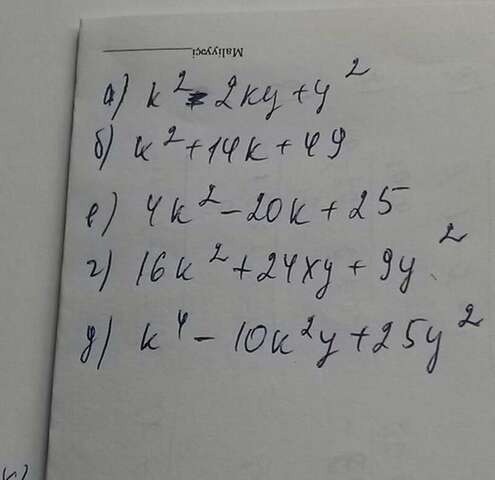 Maliyyəçi
а) k² - 2ky + y²
б) k² + 14k + 49
в) 4k² - 20k + 25
г) 16k² + 24xy + 9y²
д) k⁴ - 10k²y + 25y²